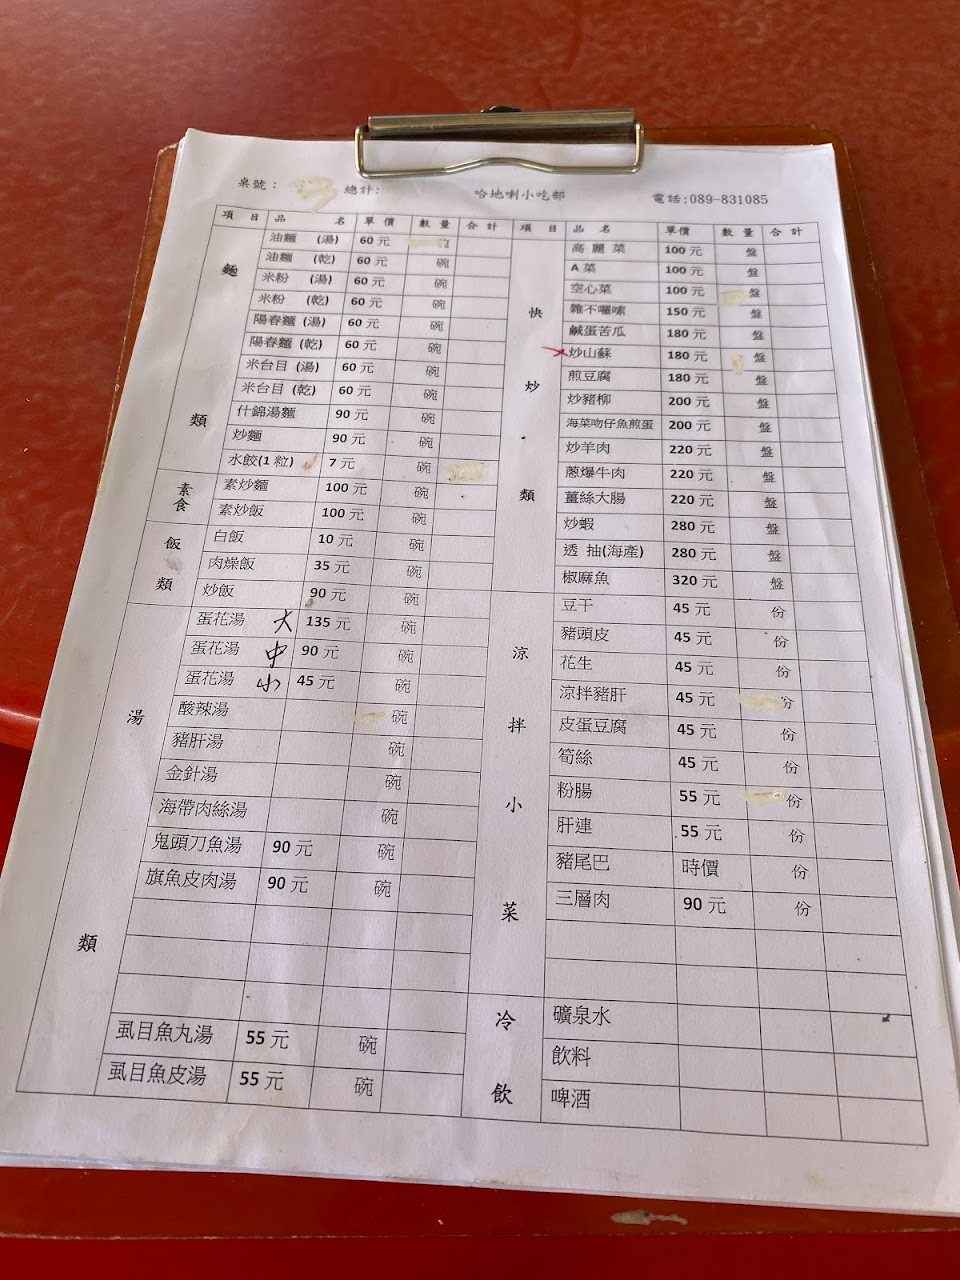 桌號： 總計: 哈地喇小吃部 電話:089-831085
項 目 品 名 單價 數量 合計
麵類
油麵 (湯) 60元
油麵 (乾) 60元 碗
米粉 (湯) 60元 碗
米粉 (乾) 60元 碗
陽春麵 (湯) 60元 碗
陽春麵 (乾) 60元 碗
米台目 (湯) 60元 碗
米台目 (乾) 60元 碗
什錦湯麵 90元 碗
炒麵 90元 碗
水餃(1粒) 7元 碗
素食
素炒麵 100元 碗
素炒飯 100元 碗
飯類
白飯 10元 碗
肉燥飯 35元 碗
炒飯 90元 碗
湯類
蛋花湯 大 135元 碗
蛋花湯 中 90元 碗
蛋花湯 小 45元 碗
酸辣湯 碗
豬肝湯 碗
金針湯 碗
海帶肉絲湯 碗
鬼頭刀魚湯 90元 碗
旗魚皮肉湯 90元 碗
虱目魚丸湯 55元 碗
虱目魚皮湯 55元 碗
項 目 品 名 單價 數量 合計
快炒類
高麗菜 100元 盤
A菜 100元 盤
空心菜 100元 盤
雜不囉嗦 150元 盤
鹹蛋苦瓜 180元 盤
炒山蘇 180元 盤
煎豆腐 180元 盤
炒豬柳 200元 盤
海菜吻仔魚煎蛋 200元 盤
炒羊肉 220元 盤
蔥爆牛肉 220元 盤
薑絲大腸 220元 盤
炒蝦 280元 盤
透 抽(海產) 280元 盤
椒麻魚 320元 盤
涼拌小菜
豆干 45元 份
豬頭皮 45元 份
花生 45元 份
涼拌豬肝 45元 份
皮蛋豆腐 45元 份
筍絲 45元 份
粉腸 55元 份
肝連 55元 份
豬尾巴 時價 份
三層肉 90元 份
冷飲
礦泉水
飲料
啤酒